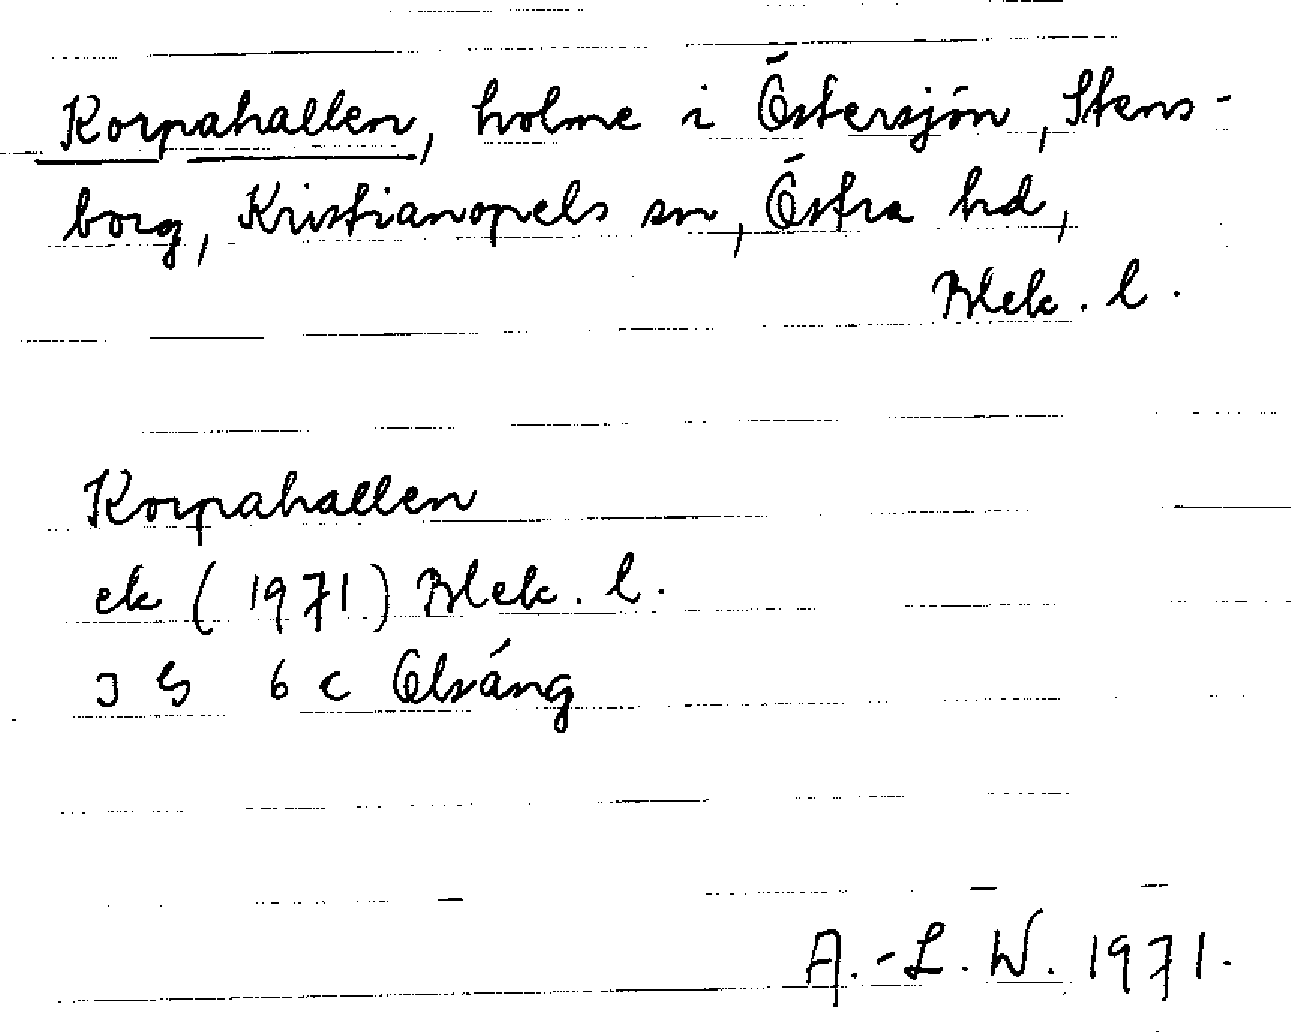 Korpahallen, holme i Östersjön, Stens-
borg, Kristianopels sn, Östra hd,
Blek. l.
Korpahallen
ek (1971) Blek. l.
3 G 6 c Olsäng
A.-L. W. 1971.